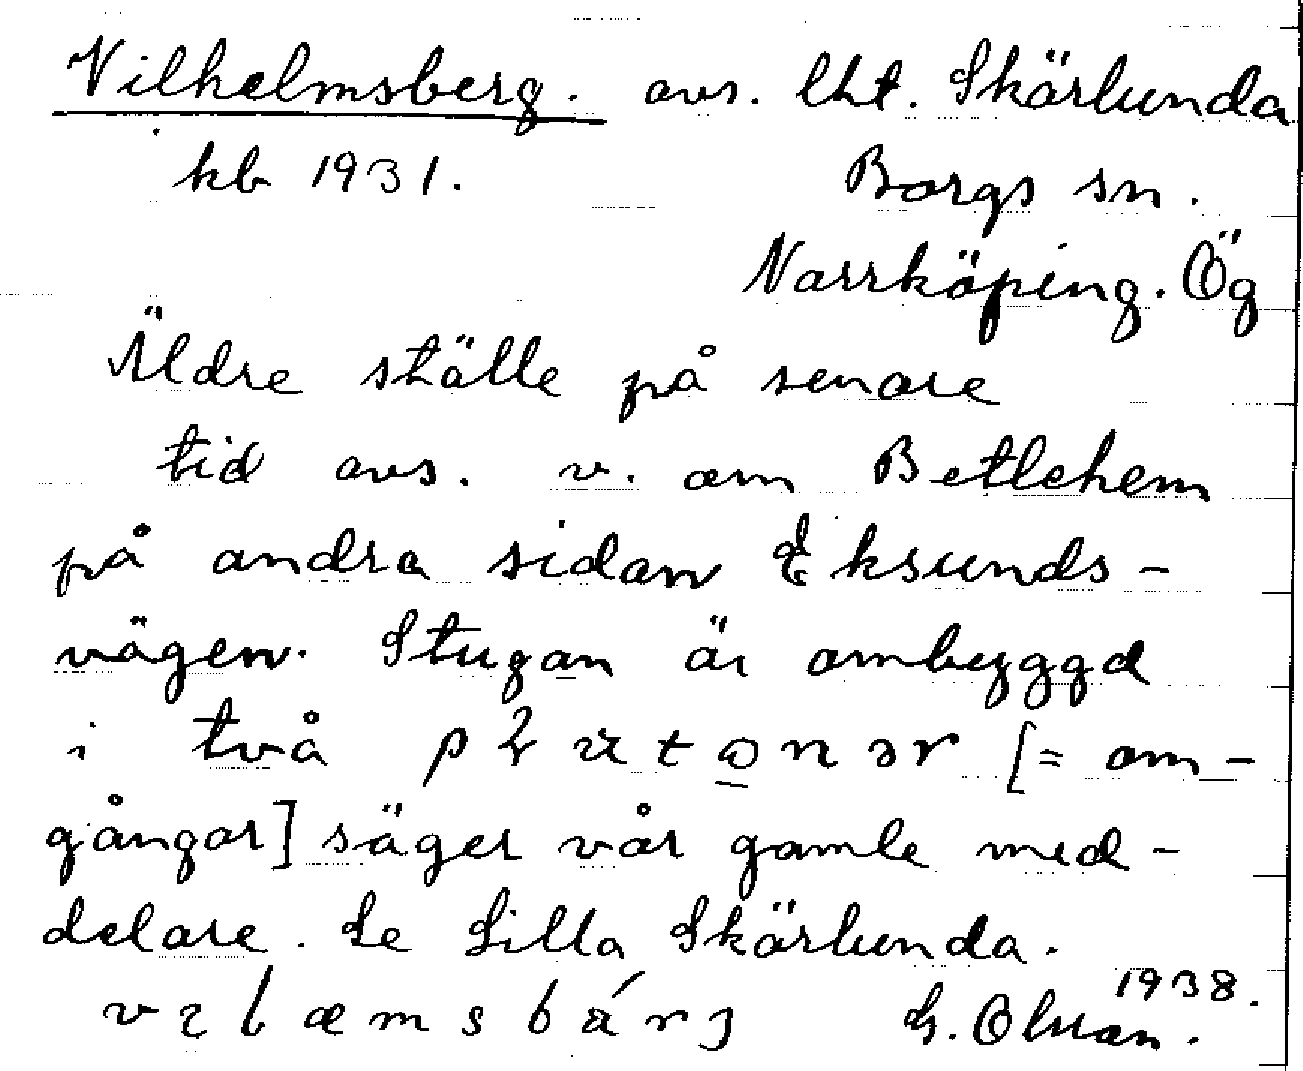 Vilhelmsberg. avs. lht. Skärlunda
kb 1931. Borgs sn.
Norrköping. Ög
Äldre ställe på senare
tid avs. v. om Betlehem
på andra sidan Eksunds-
vägen. Stugan är ombyggd
i två [= om-
gångar] säger vår gamle med-
delare. Se Lilla Skärlunda.
1938.